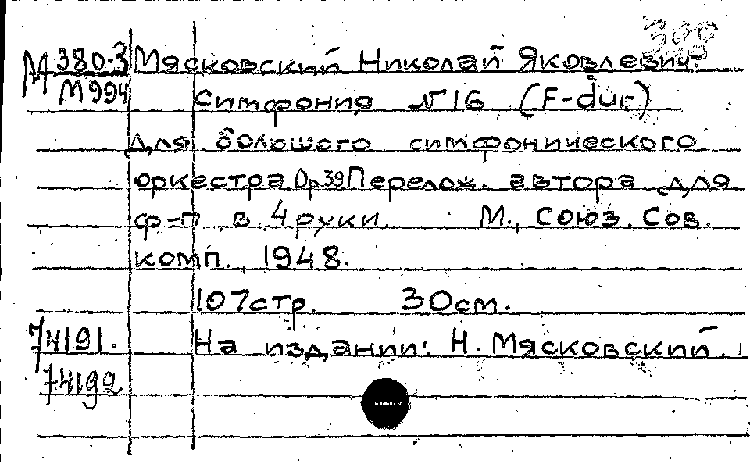 М 380-3 Мясковский Николай Яковлевич.
М994 Симфония №16 (F-dur)
для большого симфонического
оркестра Op 39 Перелож. автора для
ф-п в 4 руки. М., Союз. Сов.
комп., 1948.
107стр. 30см.
74191. На издании: Н. Мясковский.
74192